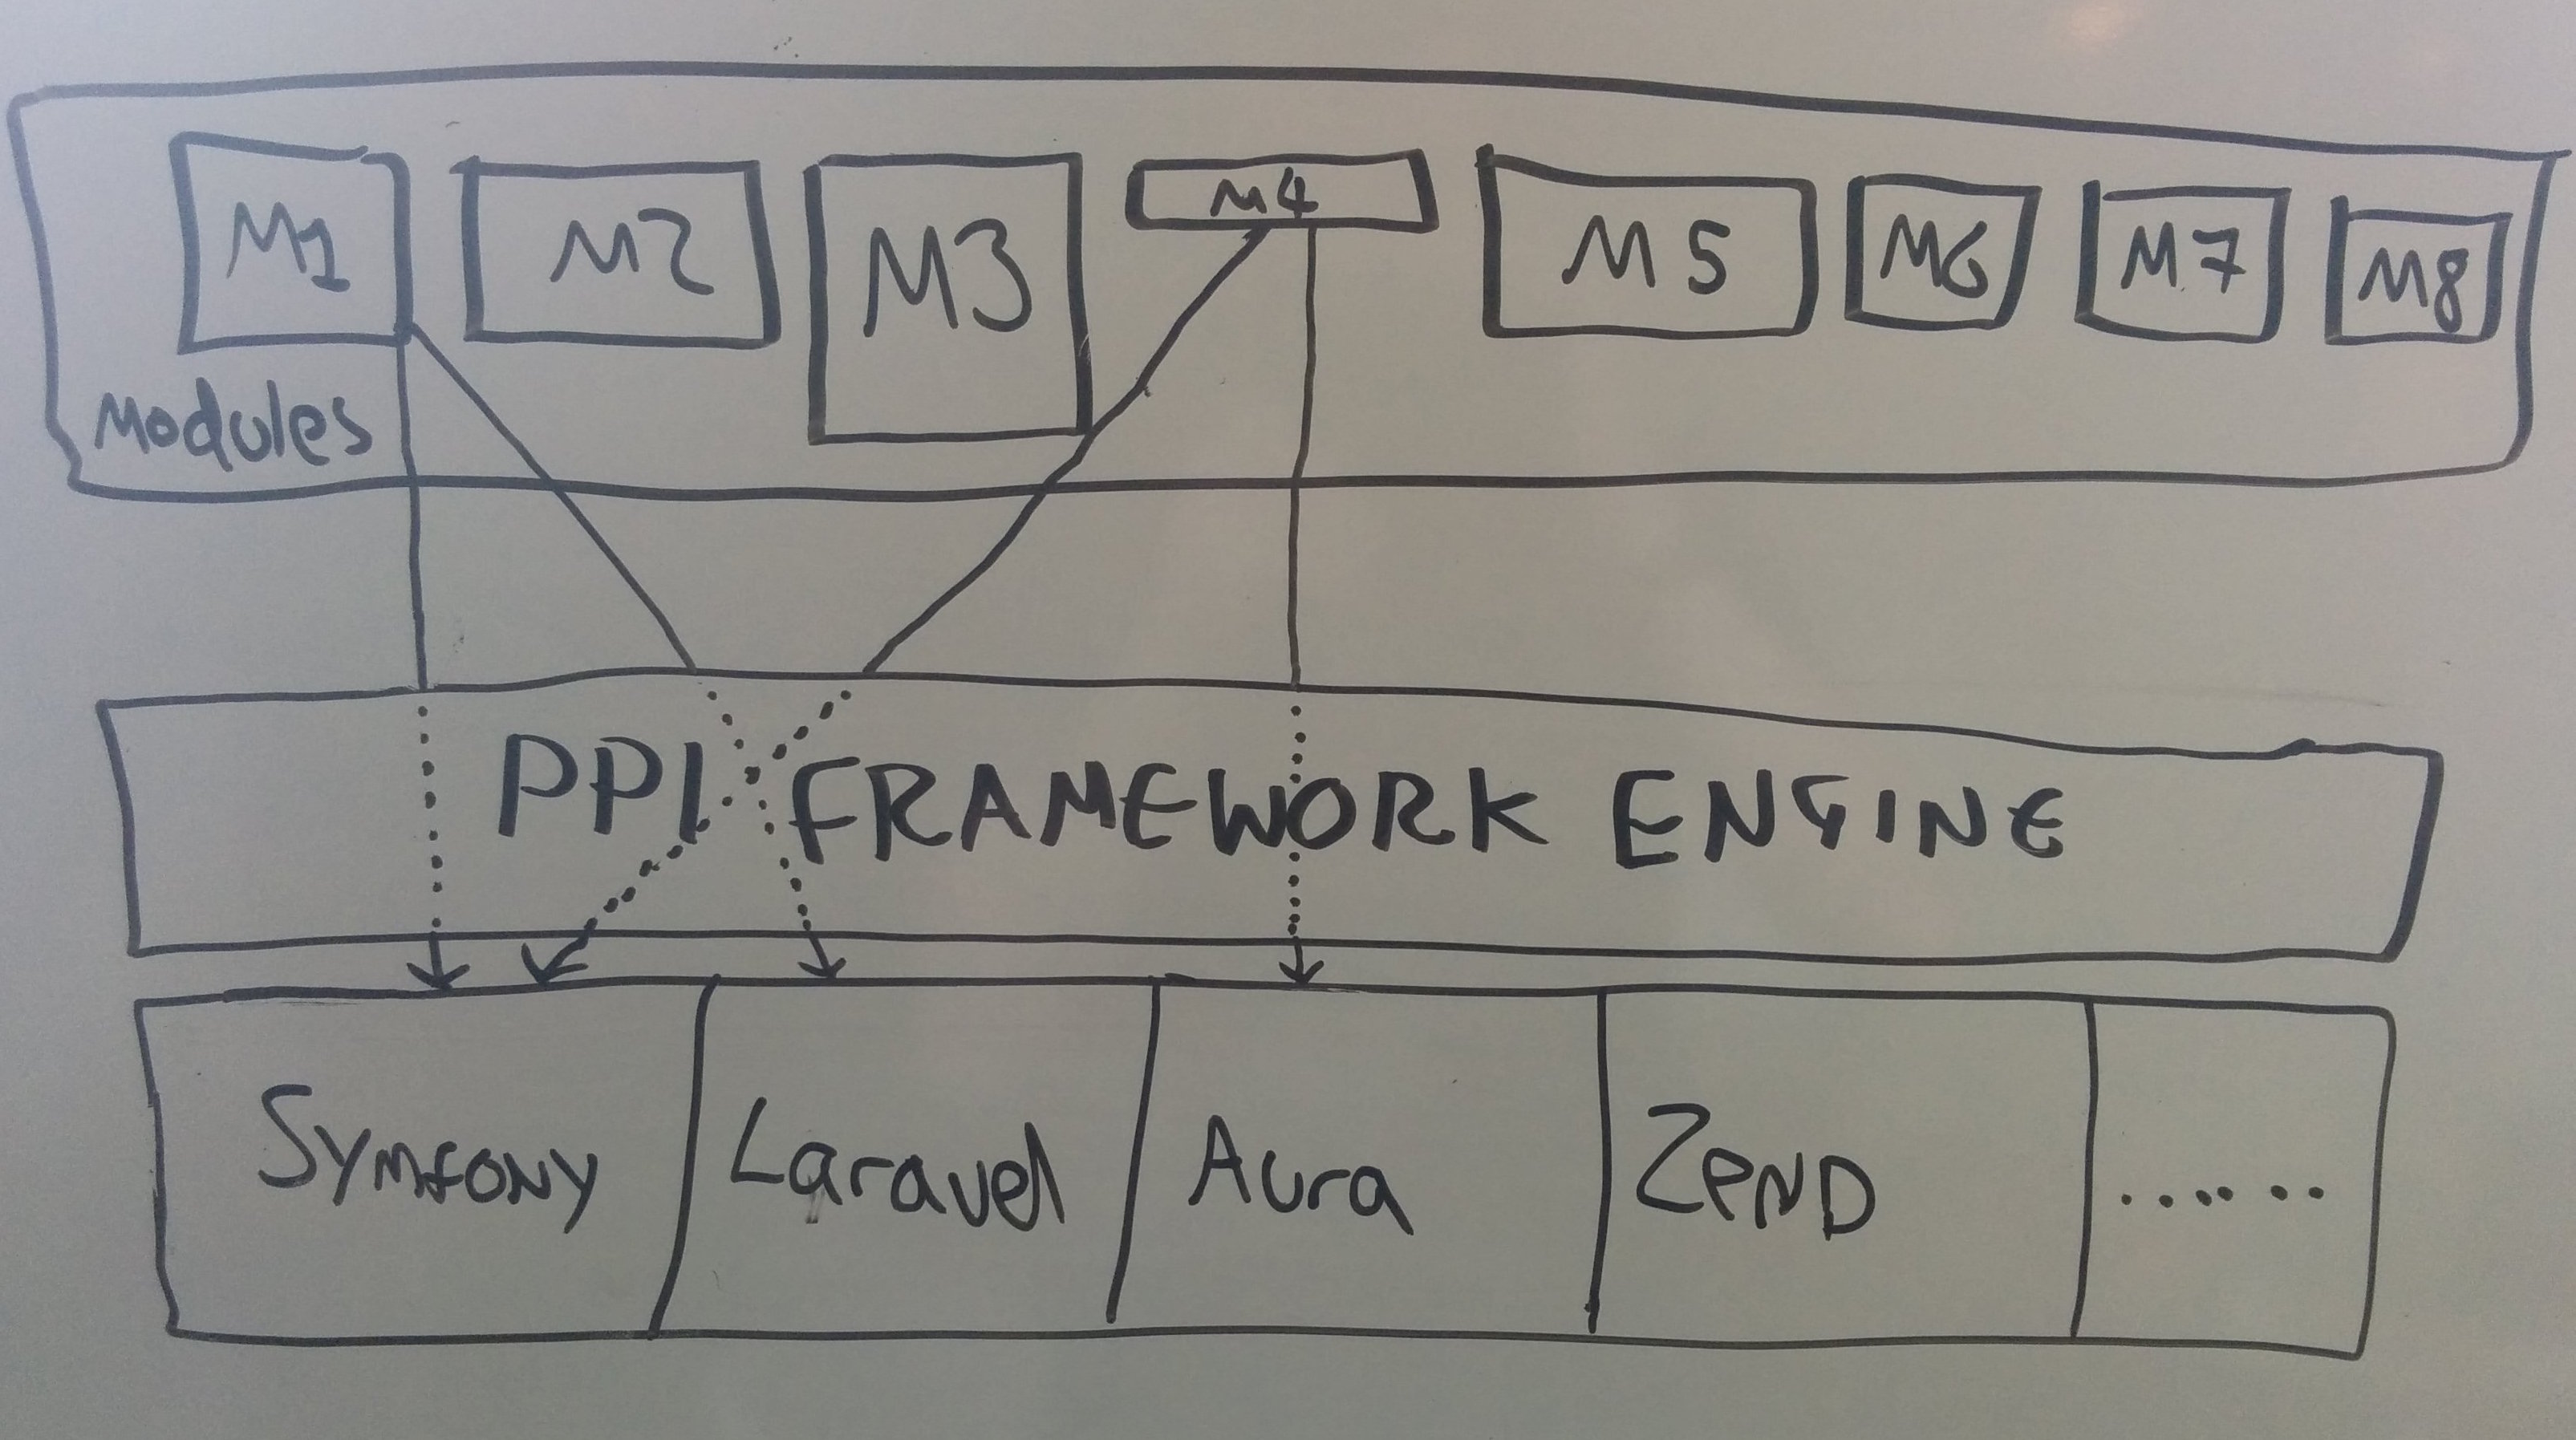 M1 M2 M3 M4 M5 M6 M7 M8
Modules
PPI FRAMEWORK ENGINE
Symfony Laravel Aura ZenD .......